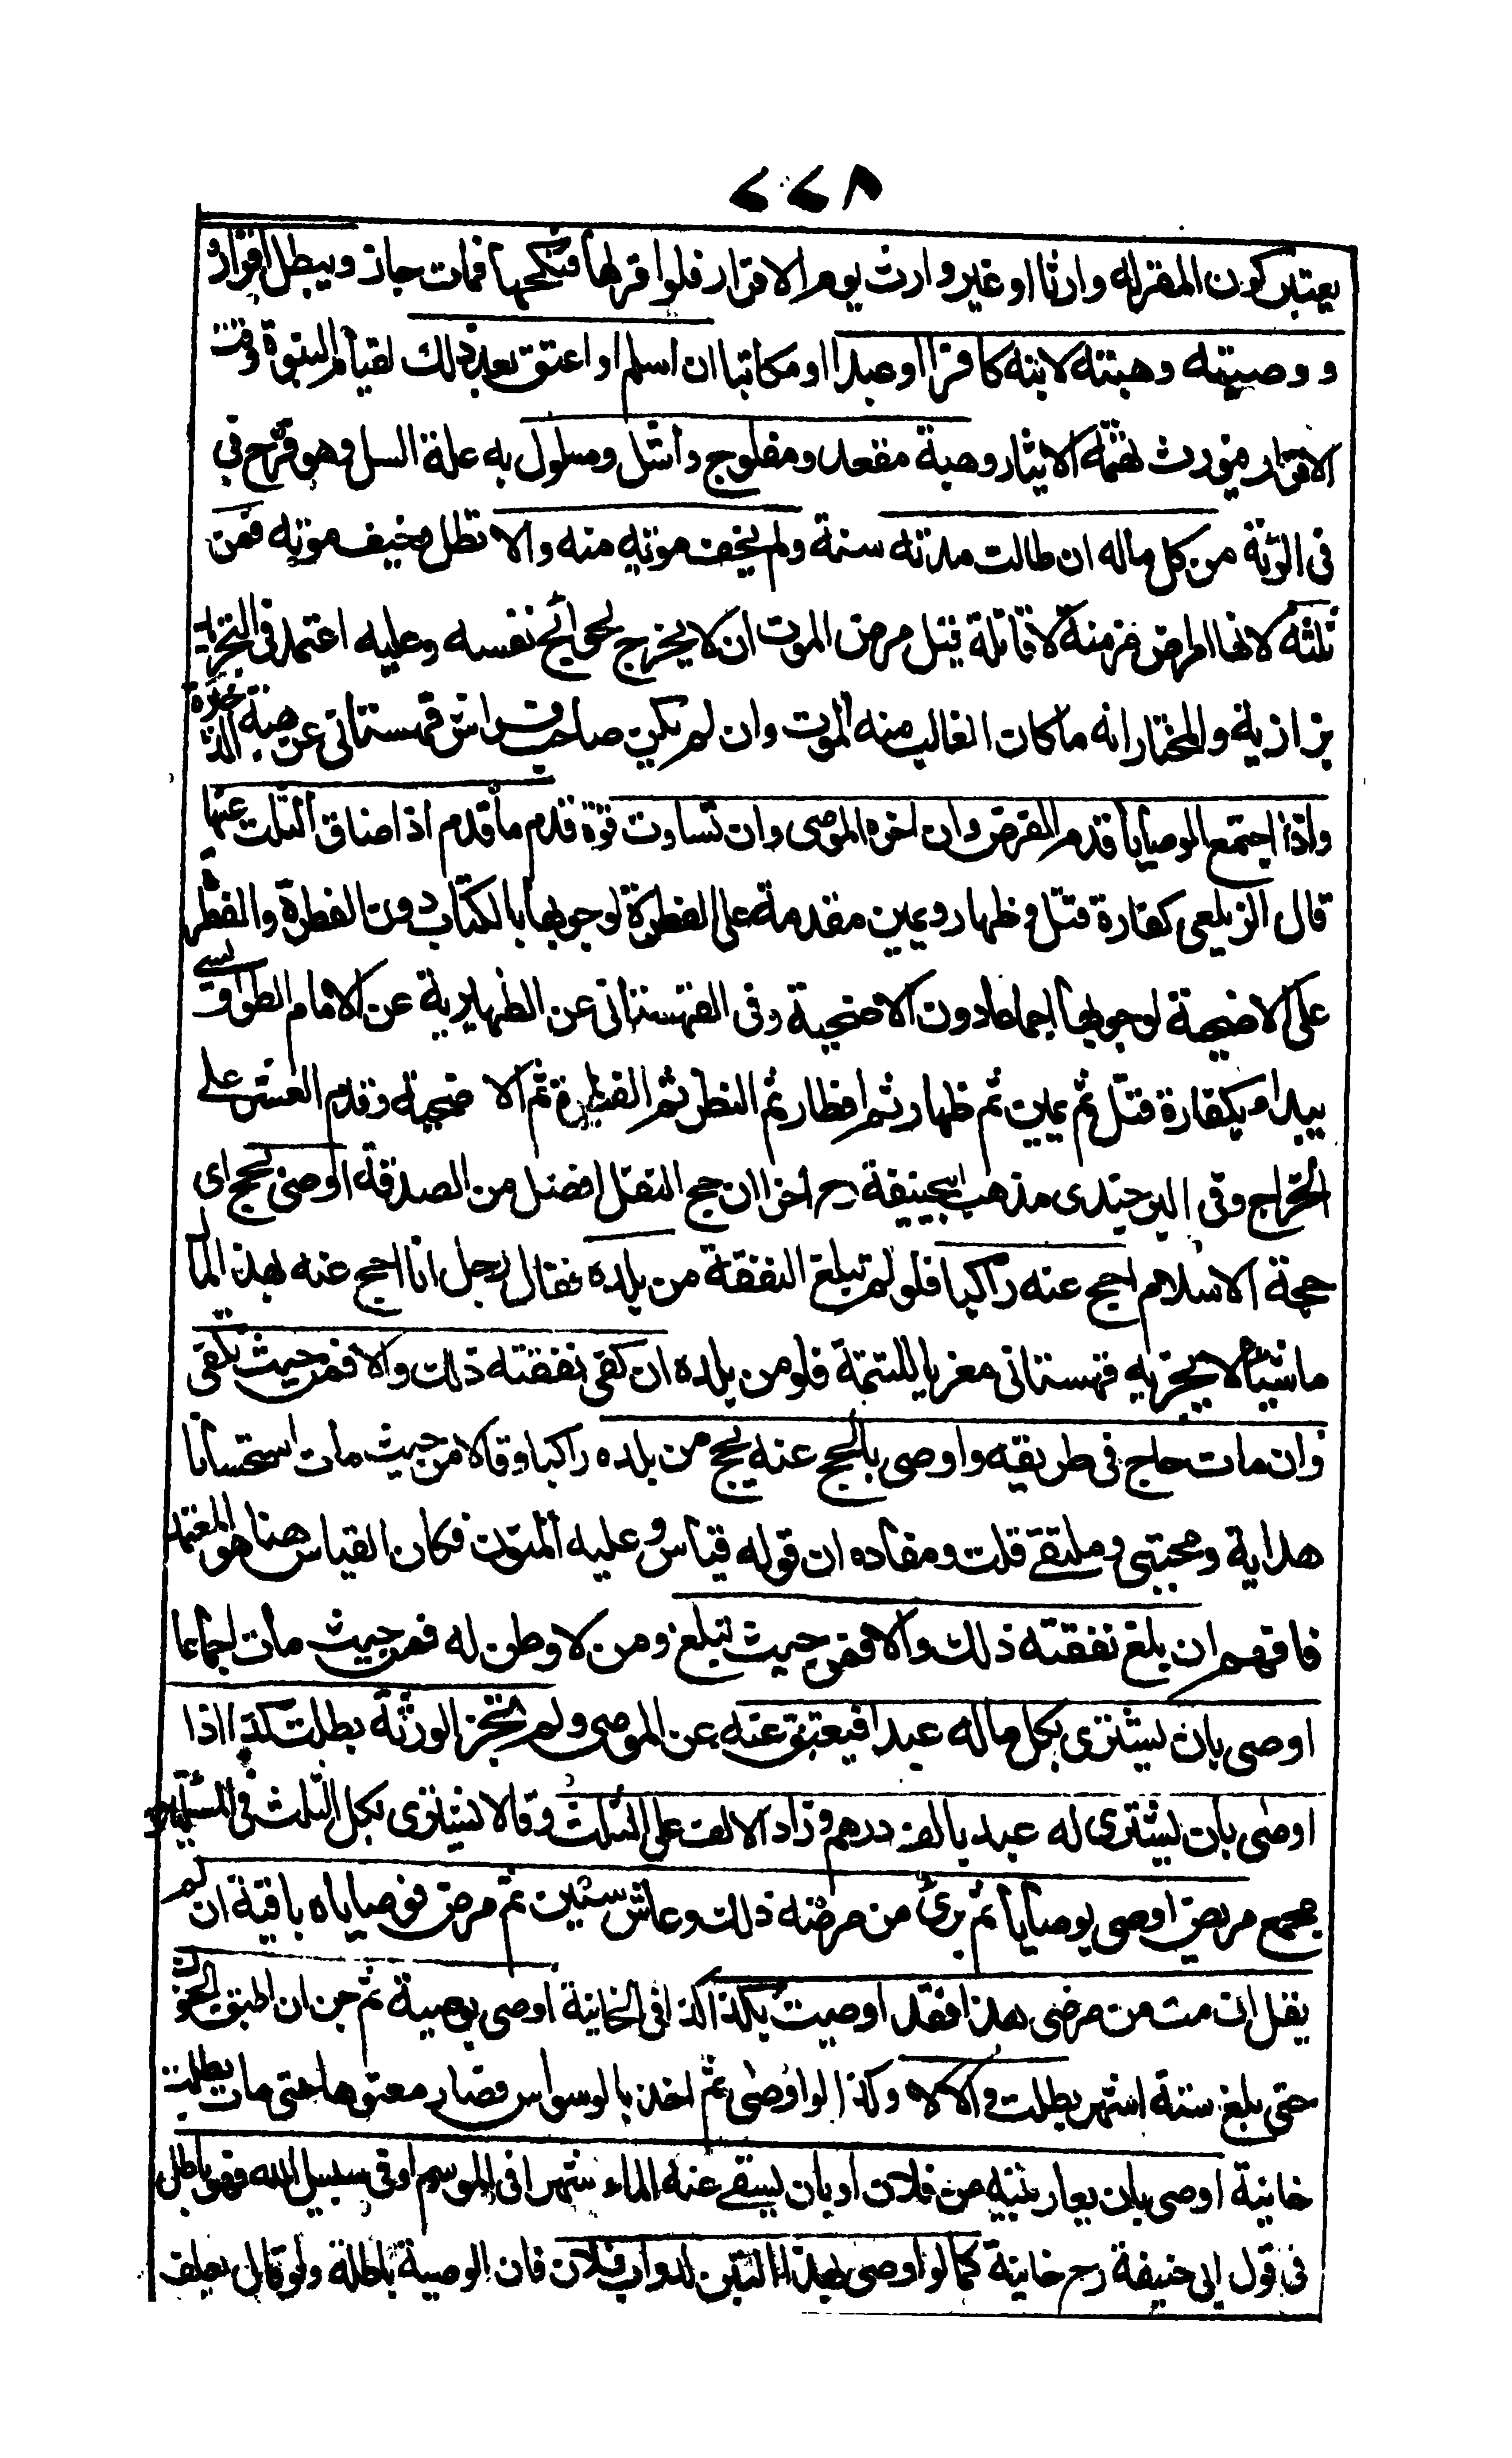 ٧٧٨
يعتبر كون المقر له وارثا او غير وارث يوم الاقرار فلو اقر لها فنكحها فمات جاز ويبطل اقراره
ووصيته وهبته لابنه كافرا او عبدا او مكاتبا ان اسلم او اعتق بعد ذلك لقيام البنوة وقت
الاقرار فيورث تهمة الايثار وهبة مقعد ومفلوج واشل ومسلول به علة السل وهو قرح في
في الرية من كل ماله ان طالت مدته سنة ولم يخف موته منه والا تطل وخيف موته فمن
ثلثه لانها امراض مزمنة لا قاتلة قيل مرض الموت ان لا يخرج لحوائج نفسه وعليه اعتمد في التجريد
بزازية والمختار انه ما كان الغالب منه الموت وان لم يكن صاحب فراش قهستاني عن هبة الذخيرة
واذا اجتمع الوصايا قدم الفرض وان اخره الموصي وان تساوت قوة قدم ما قدم اذا ضاق الثلث عنها
قال الزيلعي كفارة قتل وظهار ويمين مقدمة على الفطرة لوجوبها بالكتاب دون الفطرة والفطرة
على الاضحية لوجوبها اجماعا دون الاضحية وفي القهستاني عن الظهيرية عن الامام الطواويسي
يبدا وبكفارة قتل ثم يمين ثم ظهار ثم افطار ثم النظر ثم الفطرة ثم الاضحية وقدم العشر على
الخراج وفي البرجندي مذهب ابيحنيفة رح اخرا ان حج النفل افضل من الصدقة اوصى بحج اي
حجة الاسلام احج عنه راكبا فلو لم تبلغ النفقة من بلده فقال رجل انا احج عنه بهذا المال
ماشيا لا يجزيه قهستاني معزيا للتتمة فلو من بلده ان كفى نفقته ذلك والا فمن حيث تكفى
وان مات حاج في طريقه واوصى بالحج عنه يحج من بلده راكبا وقالا من حيث مات استحسانا
هداية ومجتبى وملتقى قلت ومفاده ان قوله قياس وعليه المتون فكان القياس هنا هو المعتمد
فافهم ان بلغ نفقته ذلك والا فمن حيث تبلغ ومن لا وطن له فمن حيث مات اجماعا
اوصى بان يشترى بكل ماله عبدا فيعتق عنه عن الموصي ولم تجز الورثة بطلت كذا اذا
اوصى بان يشترى له عبد بالف درهم وزاد الالف على الثلث وقالا يشترى بكل الثلث في المسئلتين
مجمع مريض اوصى بوصايا ثم برئ من مرضه ذلك وعاش سنين ثم مرض فوصاياه باقية ان لم
يقل ان مت من مرضي هذا فقد اوصيت بكذا كذا في الخانية اوصى بوصية ثم جن ان اطبق الجنون
حتى بلغ ستة اشهر بطلت والا لا وكذا لو اوصى ثم اخذ بالوسواس فصار معتوها حتى مات بطلت
خانية اوصى بان يعار بيته من فلان او بان يسقى عنه الماء شهرا في الموسم او في سبيل الله فهو باطل
في قول ابي حنيفة رح خانية كما لو اوصى بهذا التبن لدواب فلان فان الوصية باطلة ولو قال يعلف